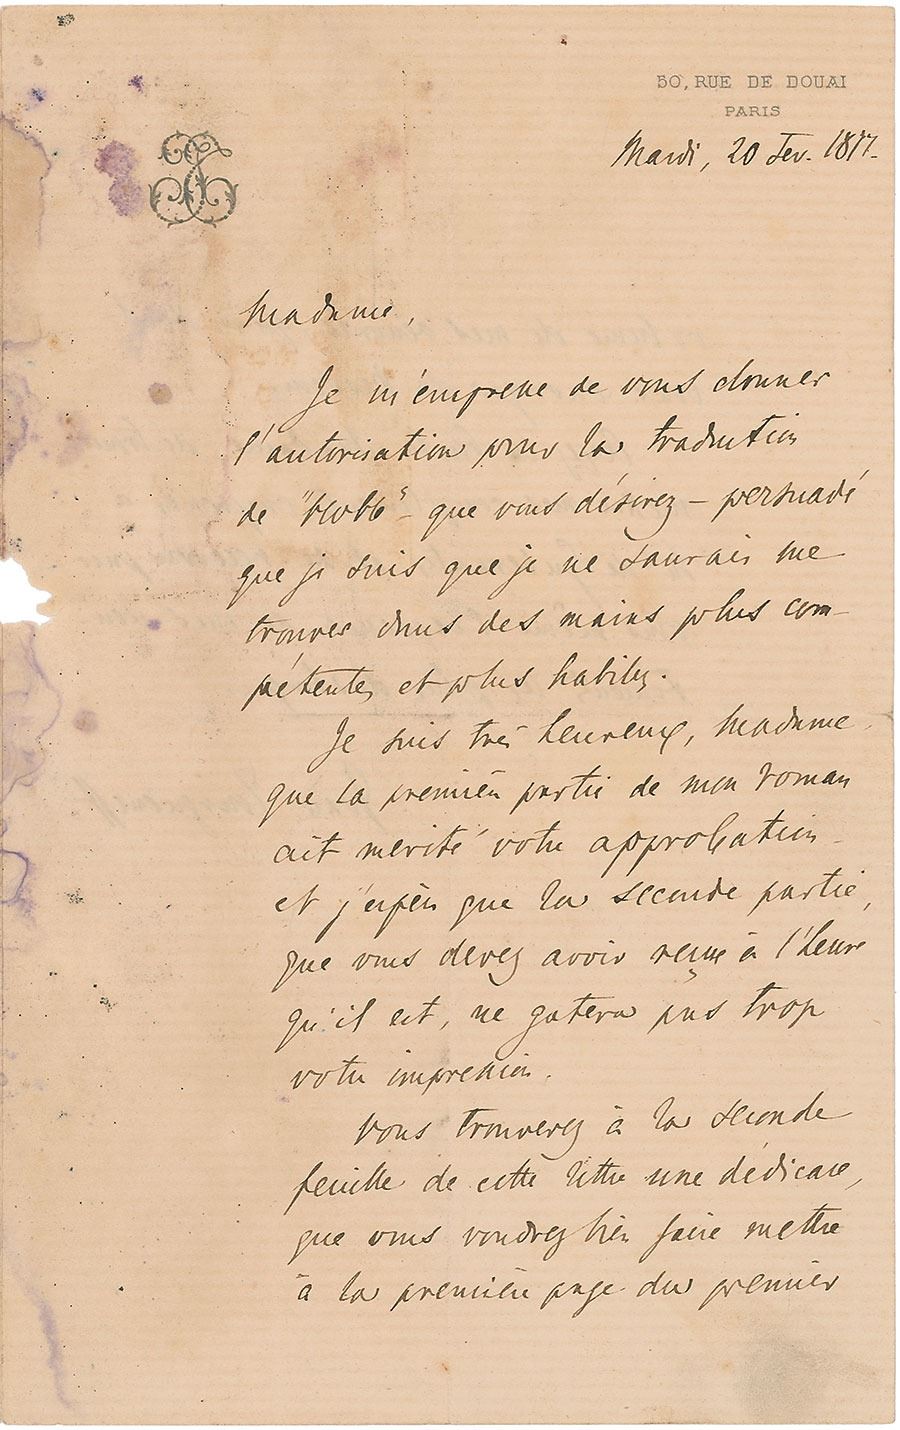 50, RUE DE DOUAI
PARIS
Mardi, 20 Fev. 1877.
Madame,
Je m'empresse de vous donner
l'autorisation pour la traduction
de "НОВЬ" – que vous désirez – persuadé
que je suis que je ne saurais me
trouver dans des mains plus com-
pétentes et plus habiles.
Je suis très heureux, Madame
que la première partie de mon roman
ait mérité votre approbation –
et j'espère que la seconde partie,
que vous devez avoir reçue à l'heure
qu'il est, ne gatera pas trop
votre impression.
Vous trouverez à la seconde
feuille de cette lettre une dédicace,
que vous voudrez bien faire mettre
à la première page du premier